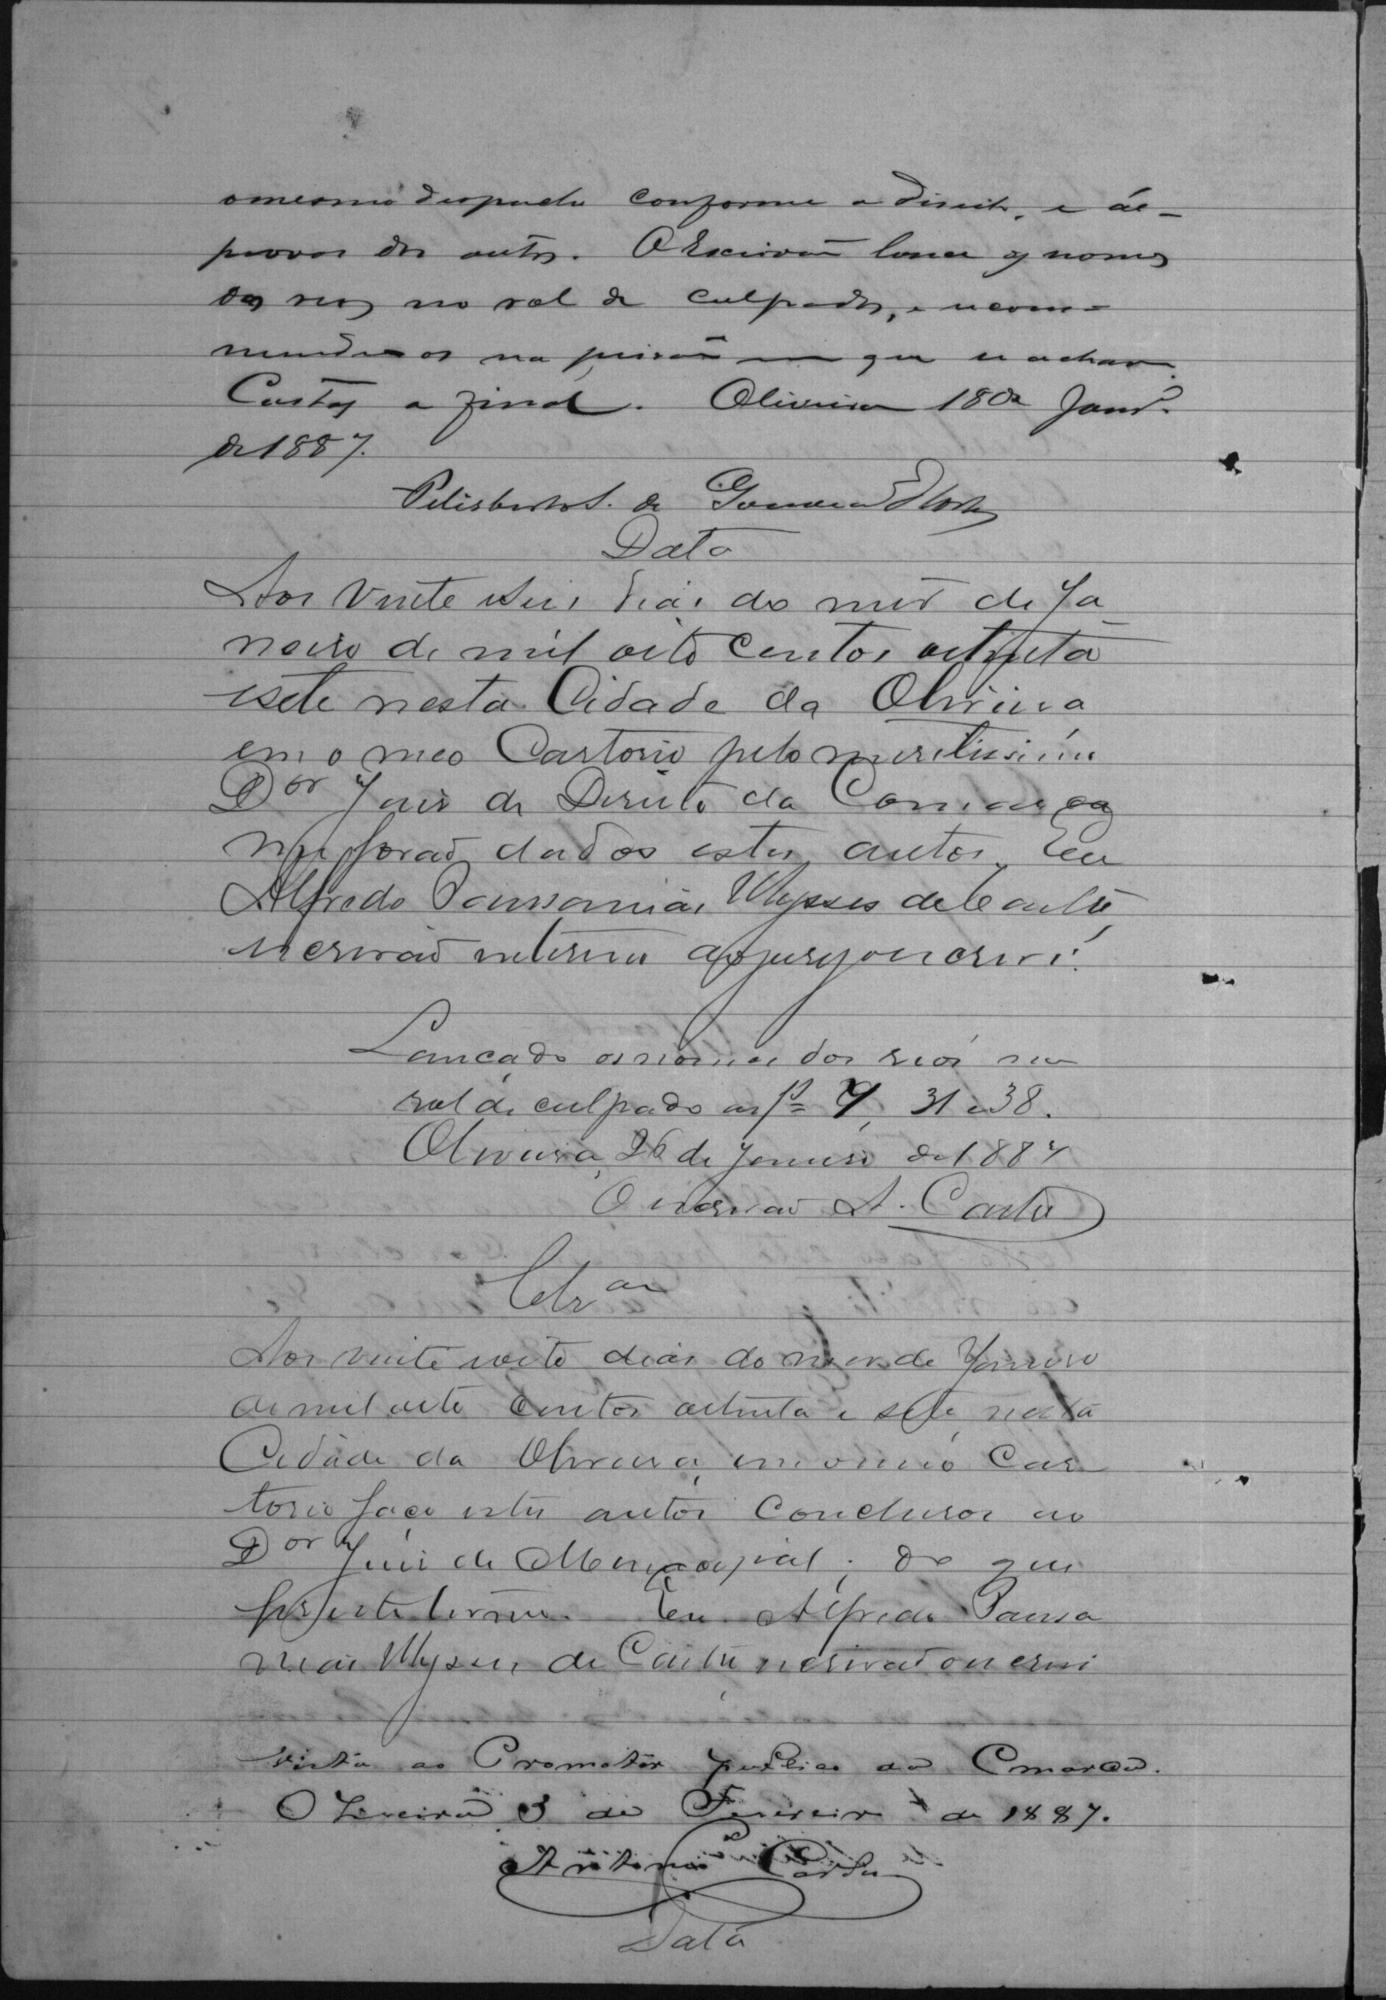 o mesmo despacho conforme a direito, e ás
provas dos autos. O Escrivão lance os nomes
dos reos no rol de culpados, e recom-
mende-os na prisão em que se achão.
Custas a final. Oliveira 18 de Janrº.
de 1887.
de Gouvea Horta
Data
Aos vinte e seis dias do mes de Ja
neiro de mil oito centos oitenta
e sete nesta Cidade da Oliveira
em o meo Cartorio pelo meritissimo
Dor Juis de Direito da Comarca
me forão dados estes autos. Eu
Alfredo Pausanias Ulysses de Castro
escrivão interino do jury o escrevi.
Lançado os nomes dos reos no
rol de culpado as fs 7, 31 e 38.
Oliveira, 26 de Janeiro de 1887
O escrivão A. Castro
Clzam
Aos vinte e oito dias do mes de Janeiro
de mil oito centos oitenta e sete nesta
Cidade da Oliveira, em o meo Car
torio faço estes autos conclusos ao
Dor Juis de Municipal; do que
fis este termo. Eu Alfredo Pausa
nias Ulysses de Castro escrivão o escrevi
Vista ao Promotor publico da Comarca.
Oliveira 3 de Fevereiro de 1887.
Antonio
Data